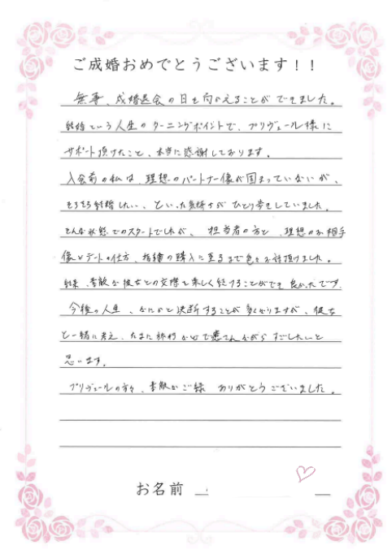 ご成婚おめでとうございます！！
無事、成婚退会の日を向かえることができました。
結婚という人生のターニングポイントで、プリヴェール様に
サポート頂けたこと、本当に感謝しております。
入会前の私は、理想のパートナー像が固まっていないが、
そろそろ結婚したい、といった気持ちがひとり歩きしていました。
そんな状態でのスタートでしたが、担当者の方と、理想のお相手
像やデートの仕方、指輪の購入に至るまで色々お付頂けました。
結果、素敵な彼女との交際を楽しく経ることができて良かったです。
今後の人生、なにかと決断することが多くなりますが、彼女
と一緒に考え、たまに
思います。
プリヴェールの方々、素敵なご縁 ありがとうございました。
お名前